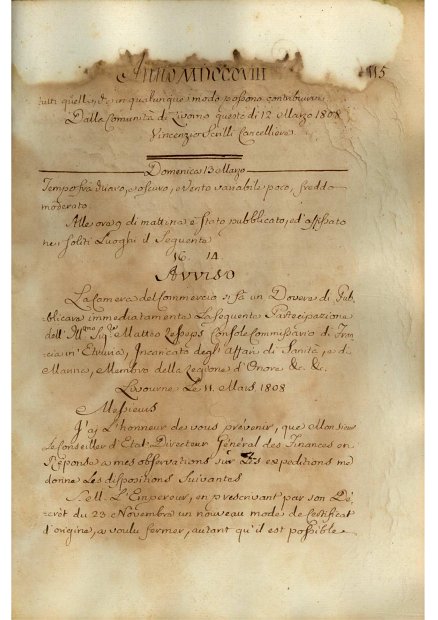 Anno MDCCCVIII
115
tutti quelli, che in qualunque modo possono contribuirvi
Dalla Comunità di Livorno questo dì 12 Marzo 1808
Vincenzio Scrilli Cancelliere
Domenica 13 Marzo
Tempo frà chiaro, e oscuro, e Vento variabile poco, freddo
moderato.
Alle ore 9 di mattina è stato pubblicato, ed affissato
ne soliti Luoghi il Seguente
16. 14.
Avviso
La Camera del Commercio si fà un Dovere di Pub-
blicare immediatamente La Seguente Partecipazione
dell' Ill.mo Sig.re Matteo Lesseps Console Commissario di Fran-
cia in Etruria, Incaricato degli Affari di Sanità, e di
Marina, Membro della Legione d'Onore &c. &c.
Livourne Le 11. Mars 1808
Messieurs
J'aj L'honneur de vous prévenir, que Monsieur
Le Conseiller d'Etat Directeur Général des Finances en
Réponse a mes observations sur Les expeditions me
donne Les dispositions Suivantes
L'Empereur, en prescrivant par son Dé-
crét du 23 Novembre un nouveau mode de Certificat
d'origine, a voulu fermer, autant qu'il est possible